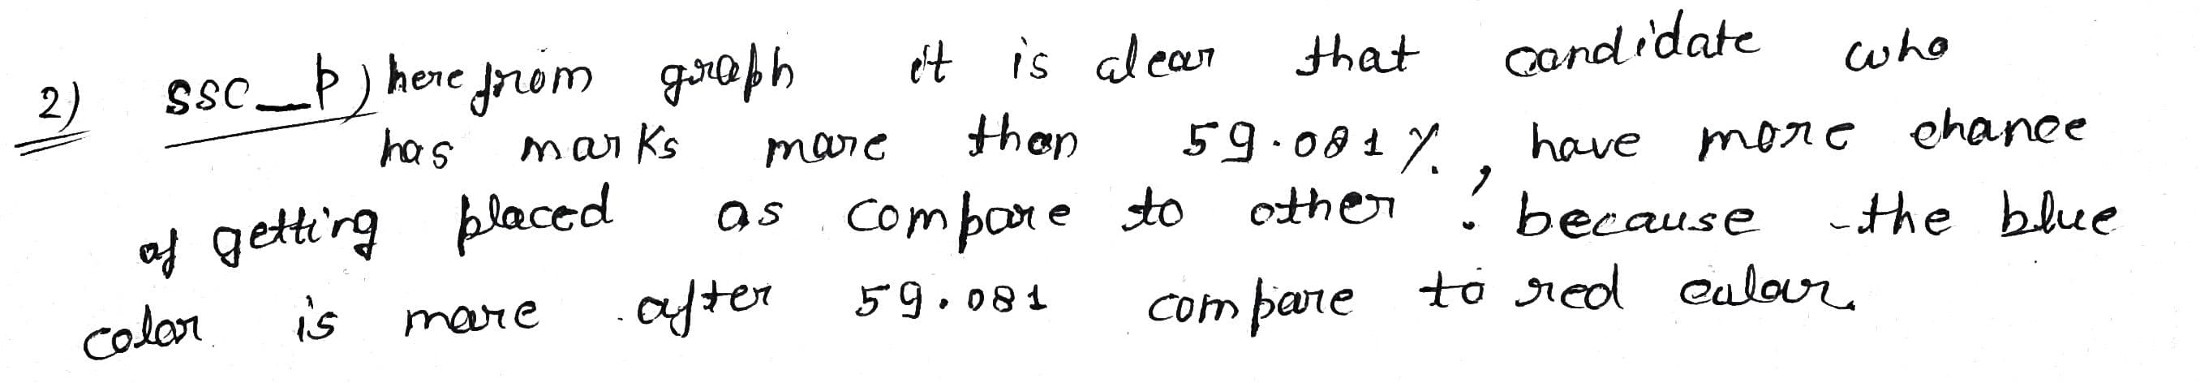 2) ssc_p) here from graph it is clear that candidate who
has marks more than 59.081%, have more chance
of getting placed as compare to other. because the blue
color is more after 59.081 compare to red colour.